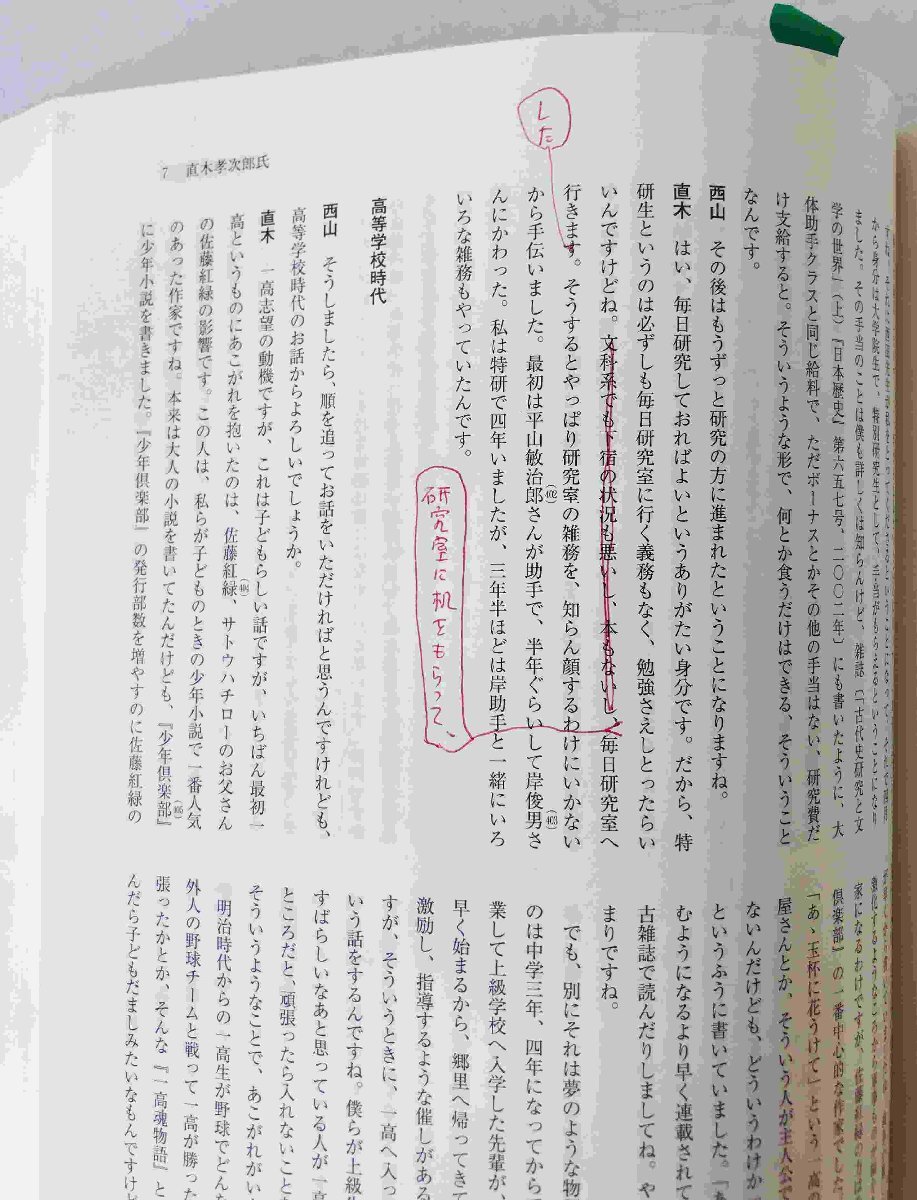 7 直木孝次郎氏
した
から身分は大学院生で、特別研究生として、手当がもらえるということになり
ました。その手当のことは僕も詳しくは知らんけど、雑誌（『古代史研究と文
学の世界』（上）『日本歴史』第六五七号、二〇〇二年）にも書いたように、大
体助手クラスと同じ給料で、ただボーナスとかその他の手当はない、研究費だ
け支給すると。そういうような形で、何とか食うだけはできる、そういうこと
なんです。
西山 その後はもうずっと研究の方に進まれたということになりますね。
直木 はい、毎日研究しておればよいというありがたい身分です。だから、特
研生というのは必ずしも毎日研究室に行く義務もなく、勉強さえしとったらい
いんですけどね。文科系でも下宿の状況も悪いし、本もないし、毎日研究室へ
行きます。そうするとやっぱり研究室の雑務を、知らん顔するわけにいかない
から手伝いました。最初は平山敏治郎(402)さんが助手で、半年ぐらいして岸俊男(403)さ
んにかわった。私は特研で四年いましたが、三年半ほどは岸助手と一緒にいろ
いろな雑務もやっていたんです。
研究室に机をもらって、
高等学校時代
西山 そうしましたら、順を追ってお話をいただければと思うんですけれども、
高等学校時代のお話からよろしいでしょうか。
直木 一高志望の動機ですが、これは子どもらしい話ですが、いちばん最初一
高というものにあこがれを抱いたのは、佐藤紅緑(404)、サトウハチローのお父さん
の佐藤紅緑の影響です。この人は、私らが子どものときの少年小説で一番人気
のあった作家ですね。本来は大人の小説を書いてたんだけども、『少年倶楽部(405)』
に少年小説を書きました。『少年倶楽部』の発行部数を増やすのに佐藤紅緑の
家になるわけですが、佐藤紅緑の
倶楽部』の一番中心的な作家でした
「あゝ玉杯に花うけて」という一高
屋さんとか、そういう人が主人公で
ないんだけども、どういうわけか
というふうに書いていました。「あ
むようになるより早く連載されて
古雑誌で読んだりしましてね。や
まりですね。
でも、別にそれは夢のような物
のは中学三年、四年になってから
業して上級学校へ入学した先輩が、
早く始まるから、郷里へ帰ってき
激励し、指導するような催しがある
すが、そういうときに、一高へ入っ
いう話をするんですね。僕らが上級
すばらしいなあと思っている人が一
ところだと、頑張ったら入れないこと
そういうようなことで、あこがれがい
明治時代からの一高生が野球でどん
外人の野球チームと戦って一高が勝った
張ったかとか、そんな『一高魂物語』と
んだら子どもだましみたいなもんですけど